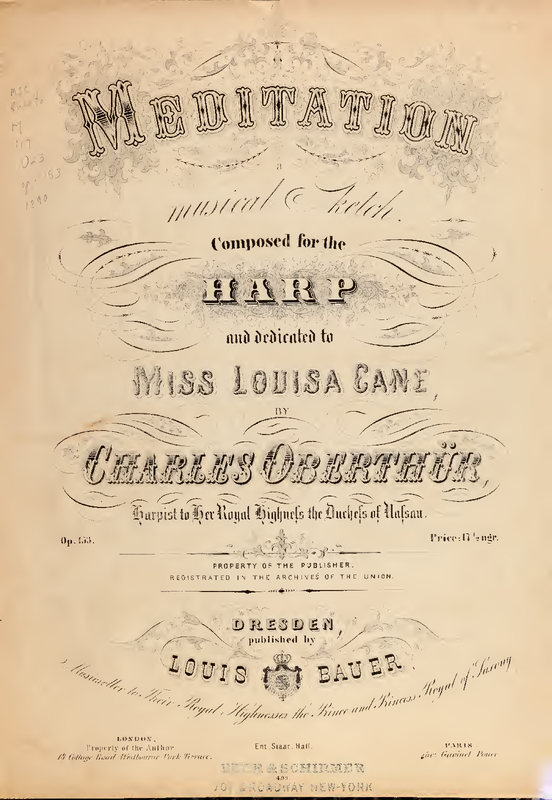 MEDITATION
a
musical Sketch.
Composed for the
HARP
and dedicated to
MISS LOUISA CANE,
BY
CHARLES OBERTHÜR,
Harpist to Her Royal Highneſs the Ducheſs of Naſsau.
Op. 153. Price: 17½ ngr.
PROPERTY OF THE PUBLISHER.
REGISTRATED IN THE ARCHIVES OF THE UNION.
DRESDEN,
published by
LOUIS BAUER,
Musicseller to Their Royal Highnesses the Prince and Princess Royal of Saxony
LONDON,
Property of the Author
14 Cottage Road Westbourne Park Terrace.
Ent. Staar. Hall.
PARIS
chez
BEER & SCHIRMER
701 BROADWAY NEW-YORK
M
153
1890